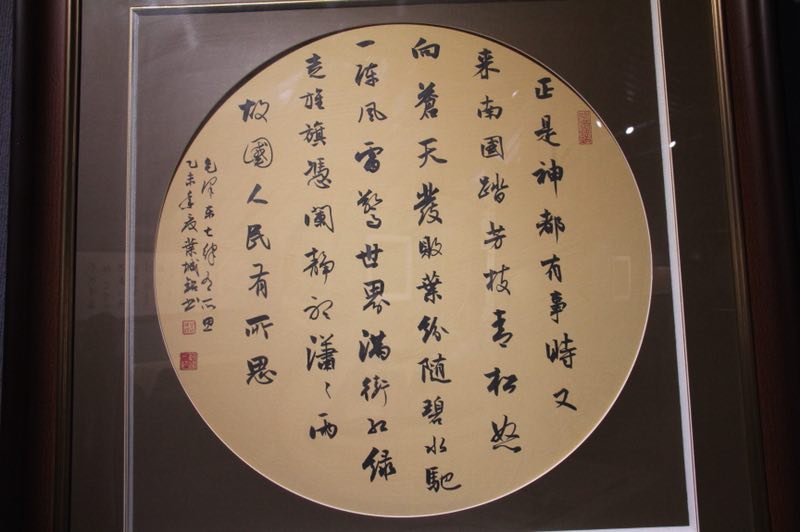 正是神都有事時又
来南國踏芳枝青松怒
向蒼天發敗葉紛随碧水馳
一阵风雷驚世界滿街红绿
走旌旗憑闌静听瀟〻雨
故國人民有所思
毛泽东七律有所思
乙未季夏葉城书